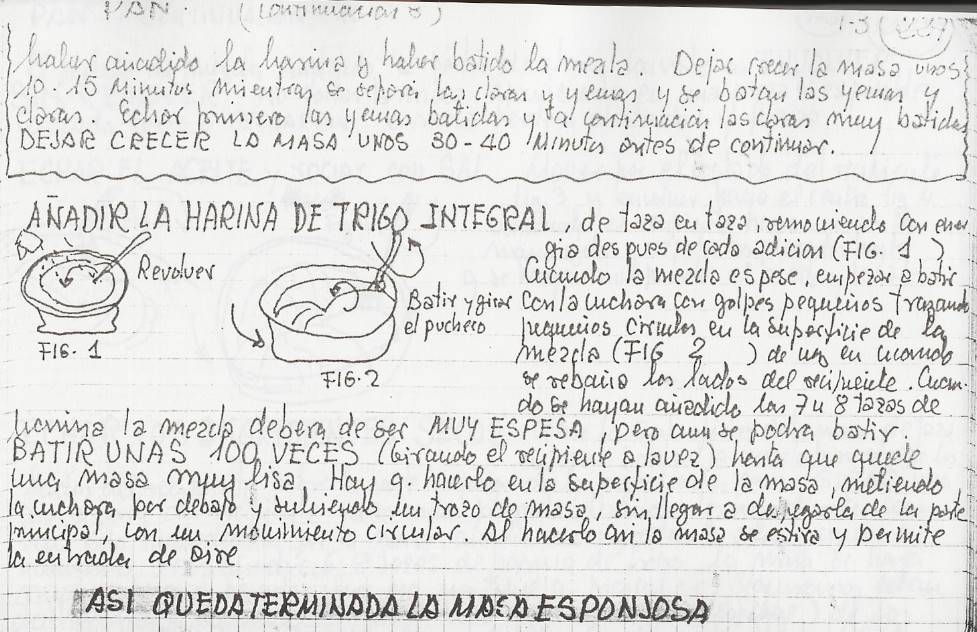 PAN. (Continuación 3)
1-3 (237)
haber añadido la harina y haber batido la mezla. Dejar crecer la masa unos
10-15 Minutos mientras se separan las claras y yemas y se batan las yemas y
claras. Echar primero las yemas batidas y a continuación las claras muy batidas
DEJAR CRECER LA MASA UNOS 30-40 Minutos antes de continuar.
AÑADIR LA HARINA DE TRIGO INTEGRAL, de taza en taza, removiendo con ener
gia despues de cada adicion (FIG. 1 )
Cuando la mezcla espese, empezar a batir
con la cuchara con golpes pequeños trazando
pequeños circulos en la superficie de la
mezcla (FIG 2 ) de vez en cuando
se rebaña los lados del recipiente. Cuan-
do se hayan añadido las 7 u 8 tazas de
Revolver
FIG. 1
Batir y girar
el puchero
FIG. 2
harina la mezcla debera de ser MUY ESPESA, pero aun se podra batir.
BATIR UNAS 100 VECES (Girando el recipiente a la vez) hasta que quede
una masa muy lisa. Hay q. hacerlo en la superficie de la masa, metiendo
la cuchara por debajo y subiendo un trozo de masa, sin llegar a despegarla de la parte
principal, con un movimiento circular. Al hacerlo asi la masa se estira y permite
la entrada de aire
ASI QUEDA TERMINADA LA MASA ESPONJOSA